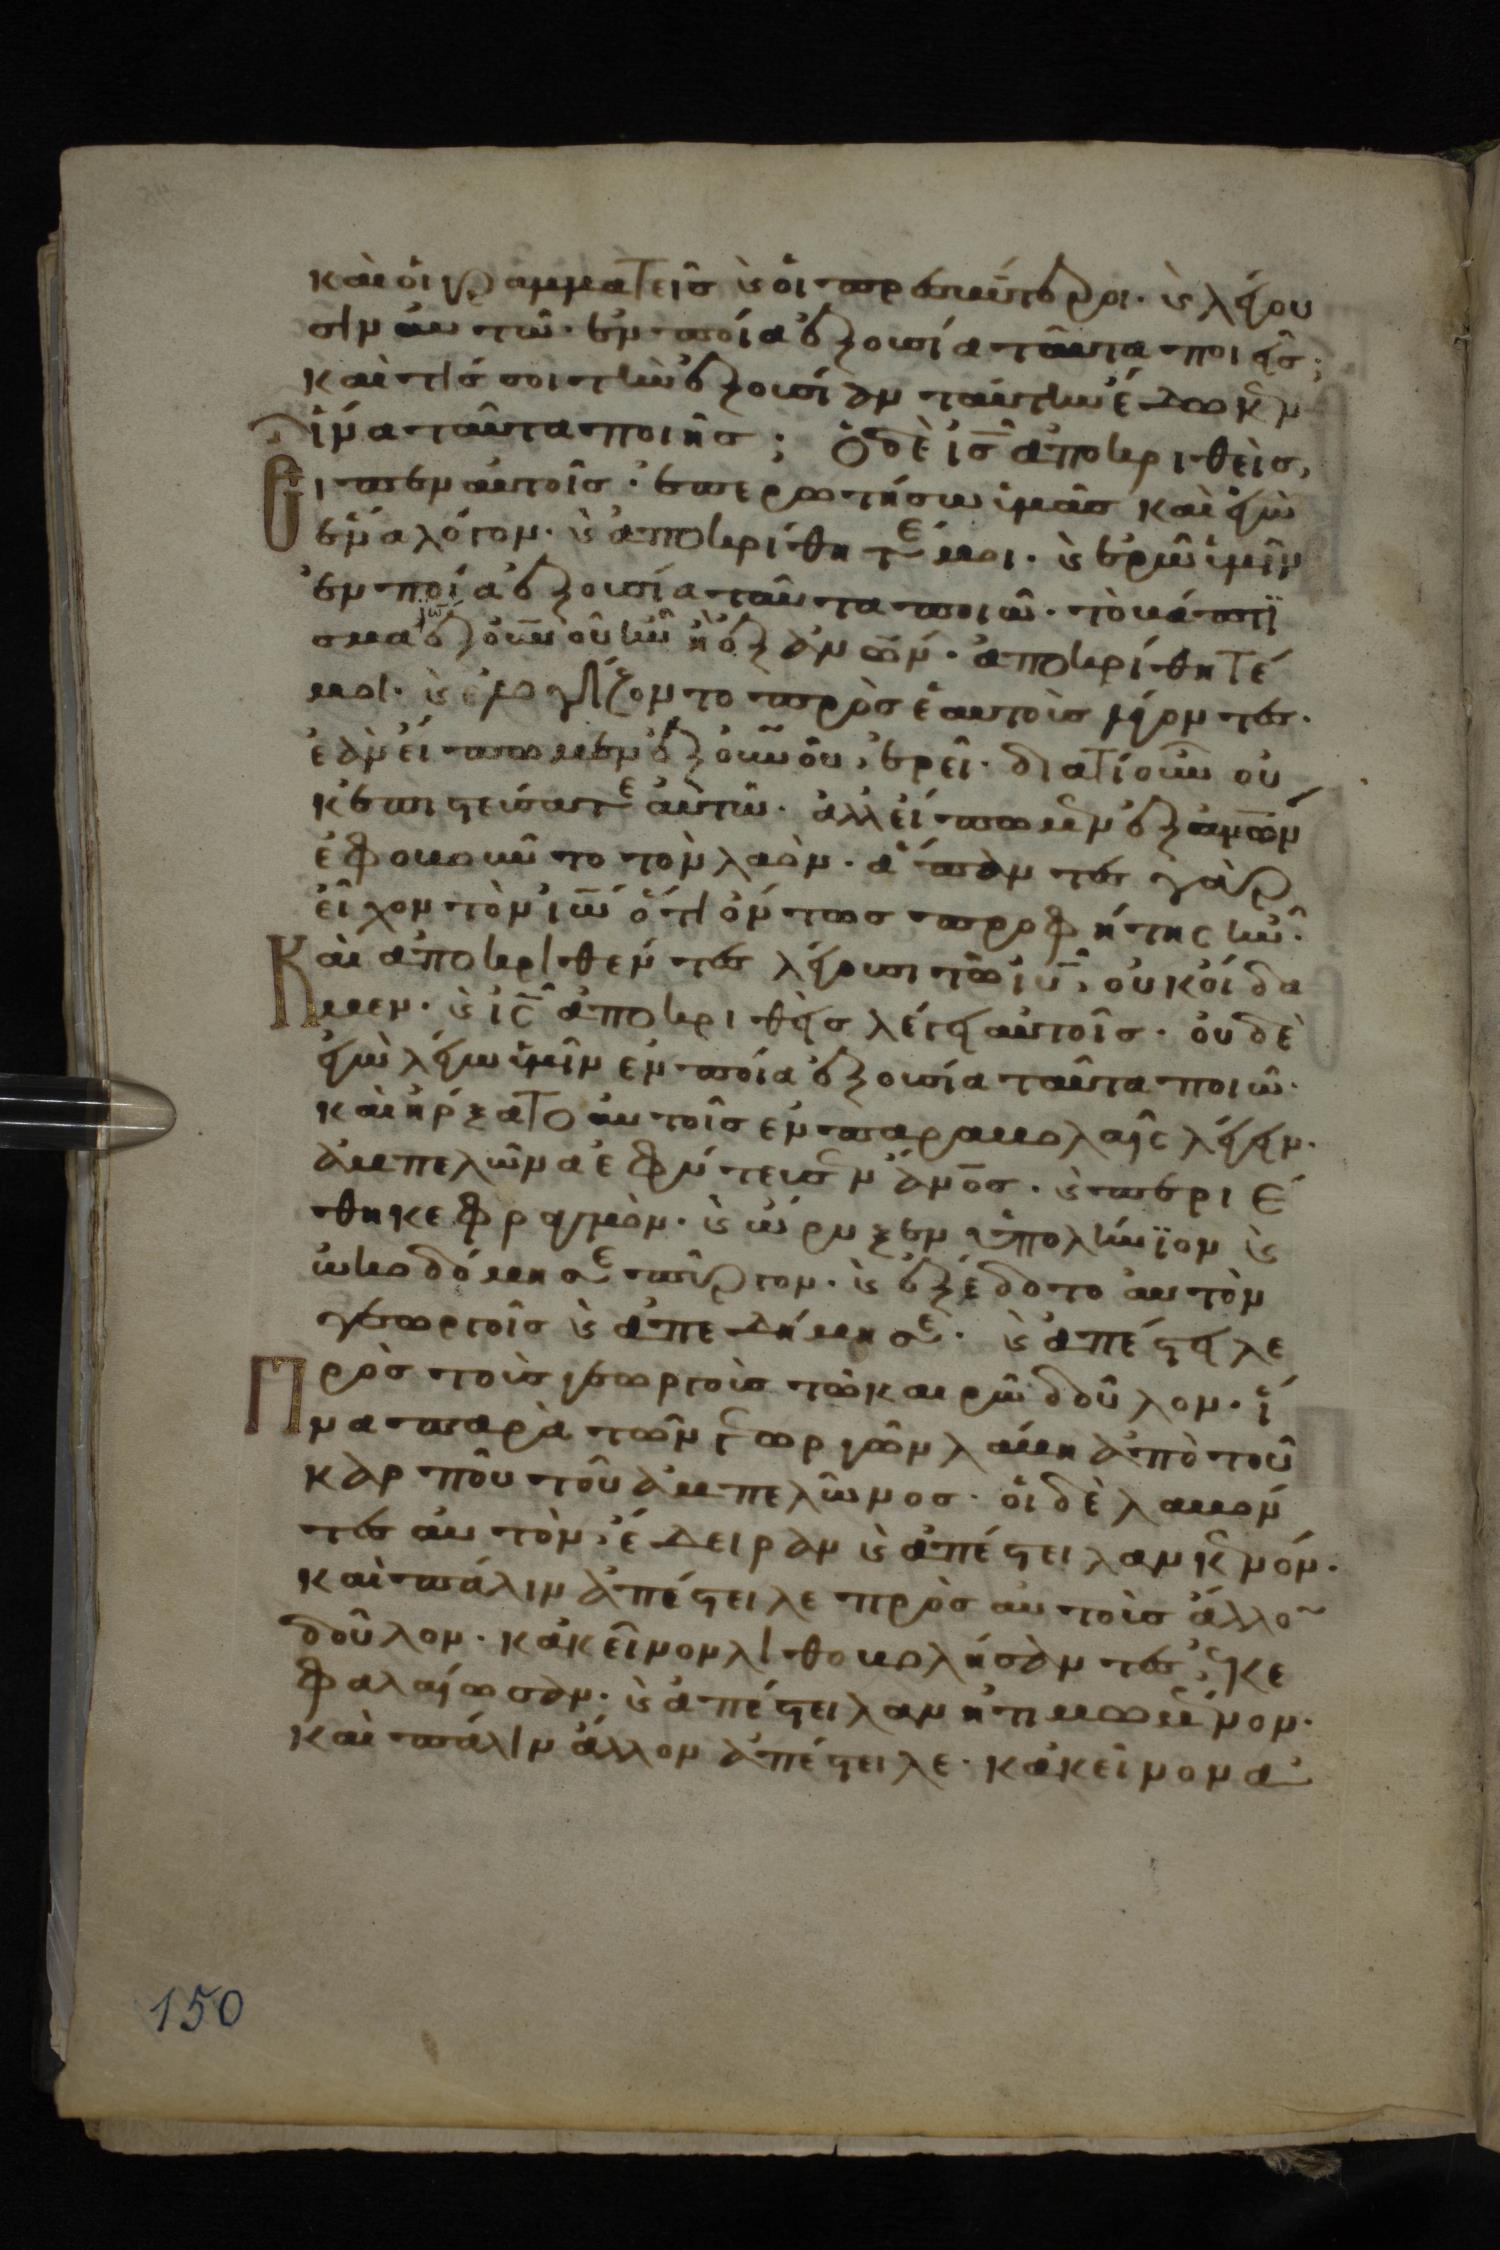 καὶ οἱ γραμματεῖς κ̀ οἱ πρεσβύτεροι· κ̀ λέγου
σιν αὐτῶ· ἐν ποία ἐξουσία ταῦτα ποιεῖς;
καὶ τίς σοι τὴν ἐξουσίαν ταύτην ἔδωκεν
ἵνα ταῦτα ποιῆς; Ὁ δὲ ις̅ ἀποκριθεὶς,
εἶπεν αὐτοῖς· ἐπερωτήσω ὑμᾶς καὶ ἐγὼ
ἕνα λόγον· κ̀ ἀποκρίθητέ μοι· κ̀ ἐρῶ ὑμῖν
ἐν ποία ἐξουσία ταῦτα ποιῶ· τὸ βάπτϊ
σμα ἰω̅ ἐξ ουν̅ου ἦν ἢ ἐξ ἀνω̅ν· ἀποκρίθητέ
μοι· κ̀ ἐλογίζοντο πρὸς ἑαυτοὺς λέγοντες·
ἐὰν εἴπωμεν ἐξ ουν̅ου, ἐρεῖ· διατί οὖν οὐ
κ ἐπιστεύσατε αὐτῶ· ἀλλ' εἴπωμεν ἐξ ἀνω̅ν
ἐφοβοῦντο τὸν λαόν· ἅπαντες γὰρ
εἶχον τὸν ἰω̅ ὅτι ὄντως προφήτης ἦν·
Καὶ ἀποκριθέντες λέγουσι τῶ ιυ̅, οὐκ οἴδα
μεν· κ̀ ὁ ις̅ ἀποκριθεὶς λέγει αὐτοῖς· οὐδὲ
ἐγὼ λέγω ὑμῖν ἐν ποία ἐξουσία ταῦτα ποιῶ·
καὶ ἤρξατο αὐτοῖς ἐν παραβολαῖς λέγειν·
ἀμπελῶνα ἐφύτευσεν ἄνος̅· κ̀ περιέ
θηκε φραγμὸν· κ̀ ὤρυξεν ὑπολήνϊον κ̀
ὠκοδόμησε πύργον· κ̀ ἐξέδοτο αὐτὸν
γεωργοῖς κ̀ ἀπεδήμησε· κ̀ ἀπέστειλε
Πρὸς τοὺς γεωργοὺς τῶ καιρῶ δοῦλον· ἵ
να παρὰ τῶν γεωργῶν λάβη ἀπὸ τοῦ
καρποῦ τοῦ ἀμπελῶνος· οἱ δὲ λαβόν
τες αὐτὸν, ἔδειραν κ̀ ἀπέστειλαν κενόν·
καὶ πάλιν ἀπέστειλε πρὸς αὐτοὺς ἄλλο̅
δοῦλον· κἀκεῖνον λιθοβολήσαντες, ἐκε
φαλαίωσαν· κ̀ ἀπέστειλαν ἠτιμωμένον·
καὶ πάλιν ἄλλον ἀπέστειλε· κἀκεῖνον ἀ
150